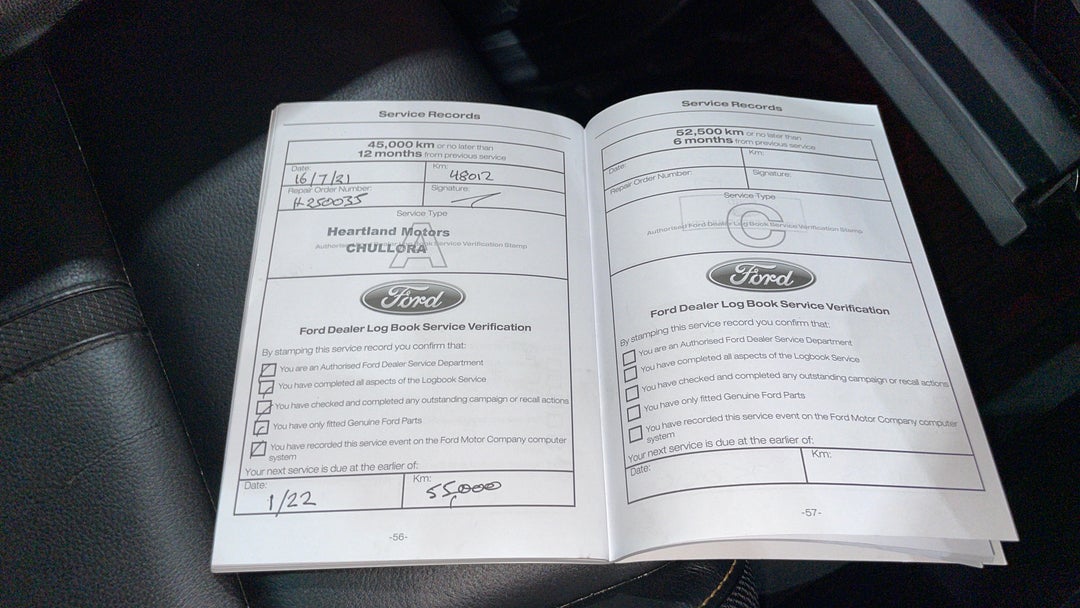 Service Records
45,000 km or no later than
12 months from previous service
Date: Km:
16/7/21 48012
Repair Order Number: Signature:
H250035
Service Type
A
Heartland Motors
Authorised Ford Dealer Log Book Service Verification Stamp
CHULLORA
Ford
Ford Dealer Log Book Service Verification
By stamping this service record you confirm that:
You are an Authorised Ford Dealer Service Department
You have completed all aspects of the Logbook Service
You have checked and completed any outstanding campaign or recall actions
You have only fitted Genuine Ford Parts
You have recorded this service event on the Ford Motor Company computer
system
Your next service is due at the earlier of:
Date: Km:
1/22 55,000
-56-
Service Records
52,500 km or no later than
6 months from previous service
Date: Km:
Repair Order Number: Signature:
Service Type
C
Authorised Ford Dealer Log Book Service Verification Stamp
Ford
Ford Dealer Log Book Service Verification
By stamping this service record you confirm that:
You are an Authorised Ford Dealer Service Department
You have completed all aspects of the Logbook Service
You have checked and completed any outstanding campaign or recall actions
You have only fitted Genuine Ford Parts
You have recorded this service event on the Ford Motor Company computer
system
Your next service is due at the earlier of:
Date: Km:
-57-